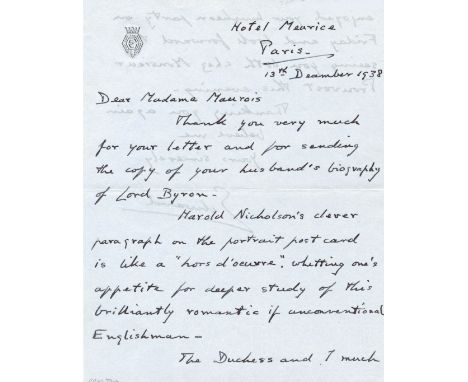 Hotel Meurice
Paris_
13th December 1938
Dear Madame Maurois
Thank you very much
for your letter and for sending
the copy of your husband's biography
of Lord Byron_
Harold Nicholson's clever
paragraph on the portrait post card
is like a "hors d'oeuvre", whetting one's
appetite for deeper study of this
brilliantly romantic if unconventional
Englishman_
The Duchess and I much